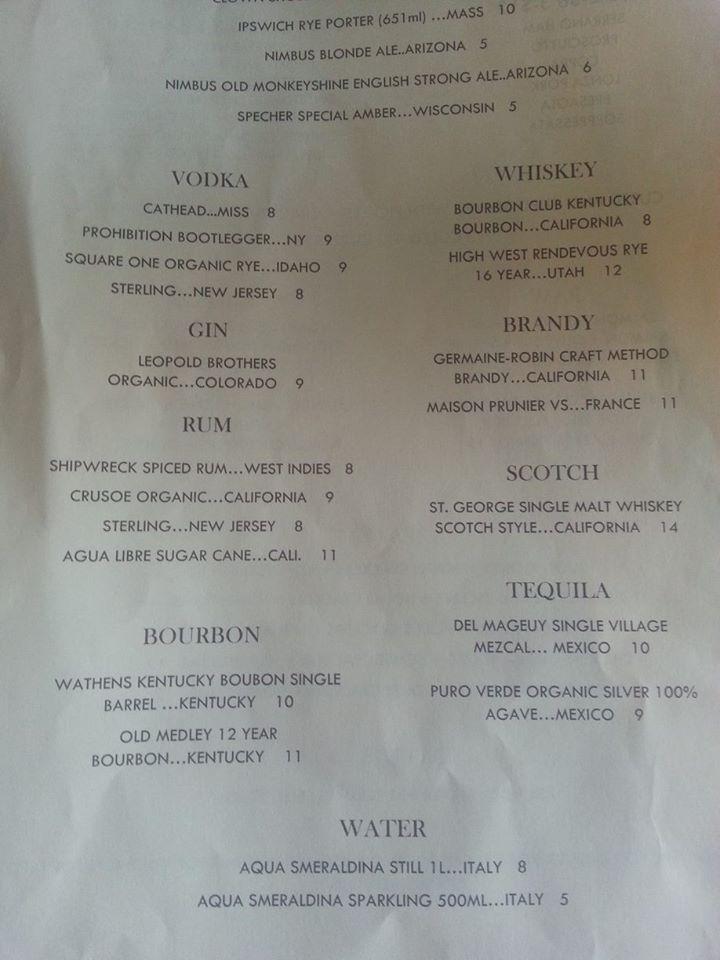 IPSWICH RYE PORTER (651ml) ...MASS 10
NIMBUS BLONDE ALE..ARIZONA 5
NIMBUS OLD MONKEYSHINE ENGLISH STRONG ALE..ARIZONA 6
SPECHER SPECIAL AMBER...WISCONSIN 5
VODKA
CATHEAD...MISS 8
PROHIBITION BOOTLEGGER...NY 9
SQUARE ONE ORGANIC RYE...IDAHO 9
STERLING...NEW JERSEY 8
GIN
LEOPOLD BROTHERS
ORGANIC...COLORADO 9
RUM
SHIPWRECK SPICED RUM...WEST INDIES 8
CRUSOE ORGANIC...CALIFORNIA 9
STERLING...NEW JERSEY 8
AGUA LIBRE SUGAR CANE...CALI. 11
BOURBON
WATHENS KENTUCKY BOUBON SINGLE
BARREL ...KENTUCKY 10
OLD MEDLEY 12 YEAR
BOURBON...KENTUCKY 11
WHISKEY
BOURBON CLUB KENTUCKY
BOURBON...CALIFORNIA 8
HIGH WEST RENDEVOUS RYE
16 YEAR...UTAH 12
BRANDY
GERMAINE-ROBIN CRAFT METHOD
BRANDY...CALIFORNIA 11
MAISON PRUNIER VS...FRANCE 11
SCOTCH
ST. GEORGE SINGLE MALT WHISKEY
SCOTCH STYLE...CALIFORNIA 14
TEQUILA
DEL MAGEUY SINGLE VILLAGE
MEZCAL... MEXICO 10
PURO VERDE ORGANIC SILVER 100%
AGAVE...MEXICO 9
WATER
AQUA SMERALDINA STILL 1L...ITALY 8
AQUA SMERALDINA SPARKLING 500ML...ITALY 5